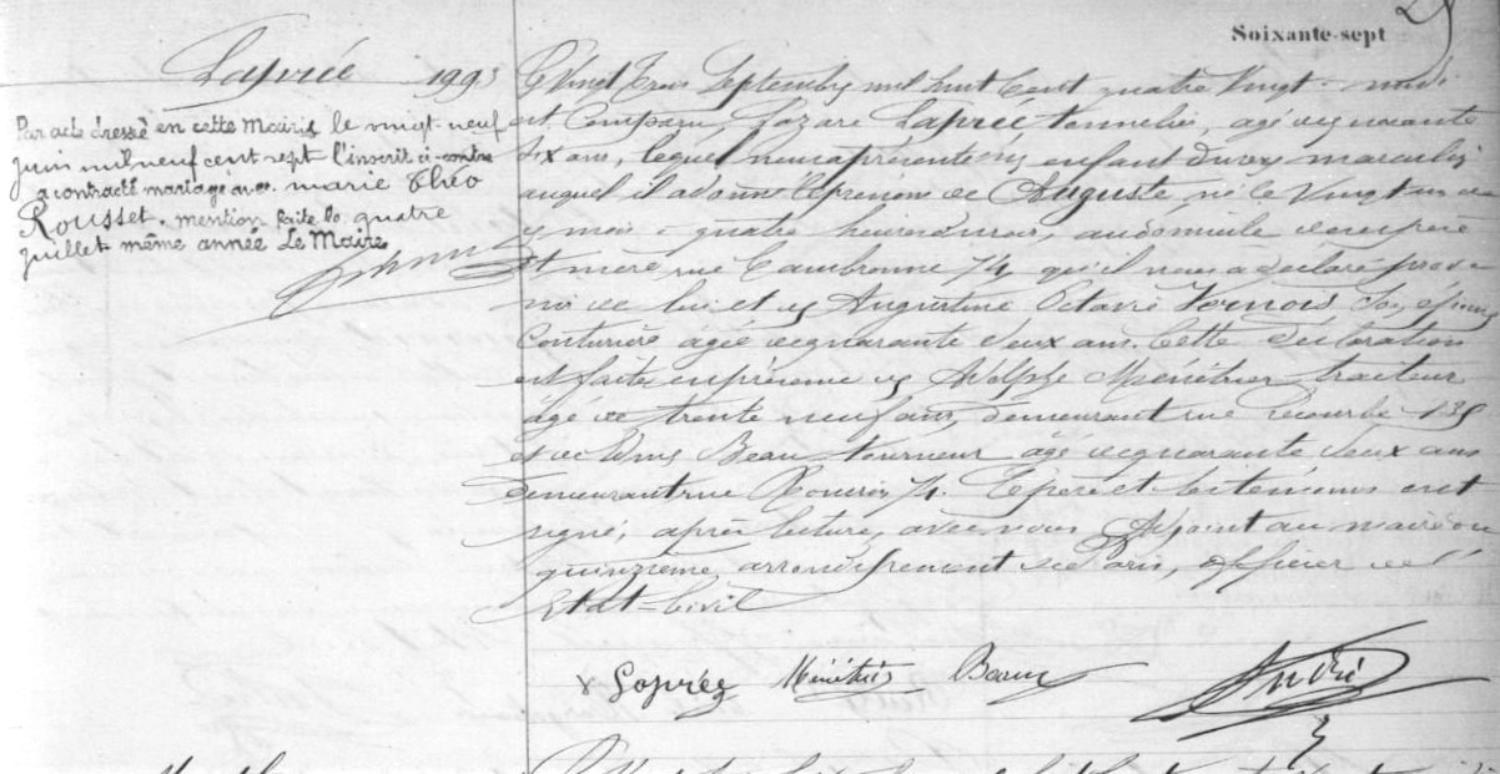 Soixante-sept
Laprée 1993
Par acte dressé en cette Mairie le vingt-neuf
juin mil neuf cent sept l'inscrit ci-contre
a contracté mariage avec marie Théo
Rousset. mention faite le quatre
juillet même année Le Maire
Le Vingt Trois Septembre mil huit Cent quatre Vingt midi
est Comparu, Lazare Laprée tonnelier, agé de quarante
six ans, lequel nous a présenté un enfant du sexe masculin
auquel il a donné le prénom de Auguste né le Vingt un de
ce mois à quatre heures du soir, au domicile de ses père
et mère rue Cambronne 74, qu'il nous a déclaré prove
nir de lui et de Augustine Octavie Vernois, Son épouse
Couturière âgée de quarante deux ans. Cette déclaration
est faite en présence de Adolphe Ménétrier traiteur
âgé de trente neuf ans, demeurant rue Lecourbe 135
et de Beau tourneur âgé de quarante deux ans
demeurant rue 71. Le père et les témoins ont
signé, après lecture, avec nous Adjoint au maire du
quinzième arrondissement de Paris, officier de l'
Etat-Civil
x Laprée Ménétrier Beau André